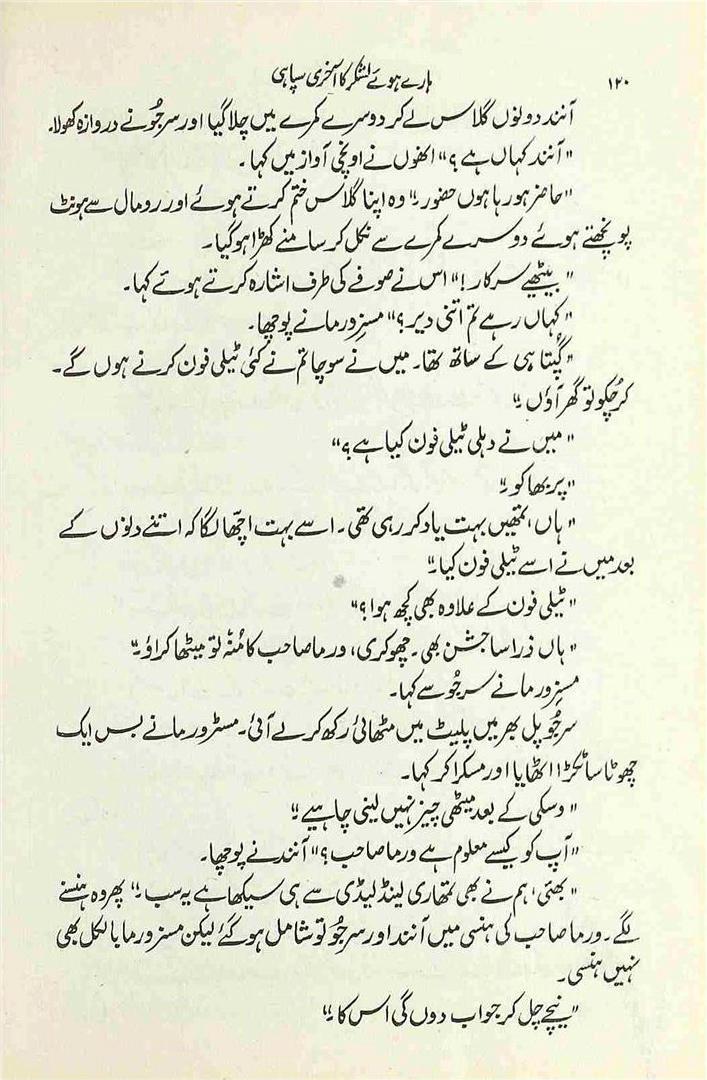 ۱۲۰
ہارے ہوئے لشکر کا آخری سپاہی
آنند دونوں گلاس لے کر دوسرے کمرے میں چلا گیا اور سرجُو نے دروازہ کھولا۔
"آنند کہاں ہے؟" انھوں نے اونچی آواز میں کہا۔
"حاضر ہو رہا ہوں حضور۔" وہ اپنا گلاس ختم کرتے ہوئے اور رومال سے ہونٹ
پونچھتے ہوئے دوسرے کمرے سے نکل کر سامنے کھڑا ہو گیا۔
"بیٹھیے سرکار!" اس نے صوفے کی طرف اشارہ کرتے ہوئے کہا۔
"کہاں رہے تم اتنی دیر؟" مسز ورما نے پوچھا۔
"گپتا ہی کے ساتھ تھا۔ میں نے سوچا تم نے کئی ٹیلی فون کرنے ہوں گے۔
کر چُکو تو گھر آؤں۔"
"میں نے دہلی ٹیلی فون کیا ہے؟"
"پربھا کو۔"
"ہاں، تمھیں بہت یاد کر رہی تھی۔ اسے بہت اچھّا لگا کہ اتنے دنوں کے
بعد میں نے اسے ٹیلی فون کیا۔"
"ٹیلی فون کے علاوہ بھی کچھ ہوا؟"
"ہاں ذرا سا جشن بھی۔ چھوکری، ورما صاحب کا مُنہ تو میٹھا کراؤ۔"
مسز ورما نے سرجُو سے کہا۔
سرجُو پل بھر میں پلیٹ میں مٹھائی رکھ کر لے آئی۔ مسٹر ورما نے بس ایک
چھوٹا سا ٹکڑا اٹھایا اور مسکرا کر کہا۔
"وسکی کے بعد میٹھی چیز نہیں لینی چاہیے۔"
"آپ کو کیسے معلوم ہے ورما صاحب؟" آنند نے پوچھا۔
"بھئی، ہم نے بھی تمھاری لینڈ لیڈی سے ہی سیکھا ہے یہ سب۔" پھر وہ ہنسنے
لگے۔ ورما صاحب کی ہنسی میں آنند اور سرجُو تو شامل ہو گئے لیکن مسز ورما بالکل بھی
نہیں ہنسی۔
"نیچے چل کر جواب دوں گی اس کا۔"